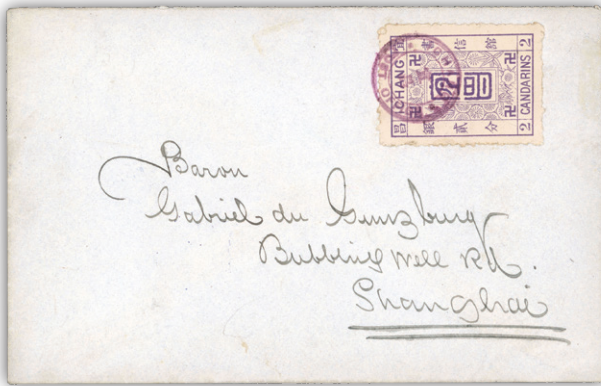 書信館
ICHANG
2 CANDARINS 2
銀貳分
Baron
Gabriel du Gunzburg
Bubbling Well Rd.
Shanghai